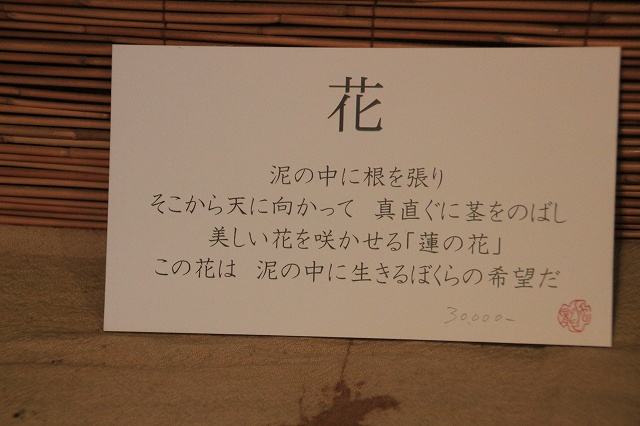 花
泥の中に根を張り
そこから天に向かって　真直ぐに茎をのばし
美しい花を咲かせる「蓮の花」
この花は　泥の中に生きるぼくらの希望だ
30,000-